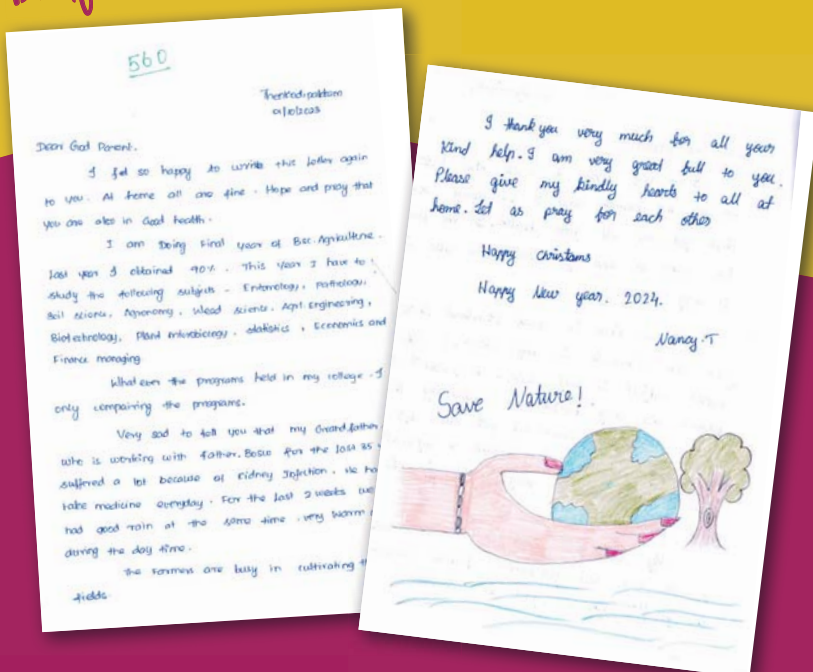 560
01/10/2023
Dear God Parent.
I fel so happy to write this letter again
to you. At home all are fine. Hope and pray that
you are also in Good health.
I am Doing Final year of Bsc.Agriculture.
last year I obtained 90%. This year I have to
study the following subjects. Entomology, pathology,
Soil science, Agronomy, Weed science, Agri Engineering,
Biotechnology, Plant microbiology, statistics, Economics and
Finance managing
What ever the programs held in my college. I
only compairing the programs.
Very sad to tell you that my Grand father
who is working with father. Bosco for the last 35
suffered a lot because of Kidney Infection. He
take medicine everyday. For the last 2 weeks we
had good rain at the same time. very warm
during the day time.
The Farmers are busy in cultivating
fields.
I thank you very much for all your
Kind help. I am very great full to you.
Please give my kindly hearts to all at
home. Let as pray for each other
Happy christams
Happy New year. 2024.
Nancy.T
Save Nature!.